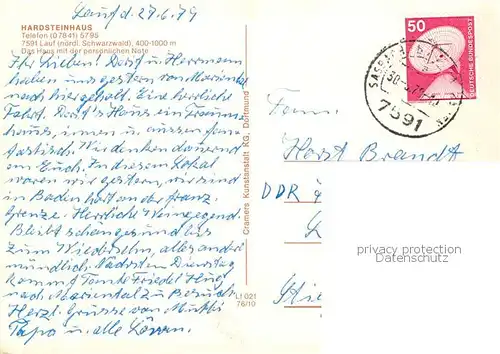 Lauf d. 27.6.79
HARDSTEINHAUS
Telefon (07841) 5795
7591 Lauf (nördl. Schwarzwald), 400-1000 m
Das Haus mit der persönlichen Note
Ihr Lieben! Dort u. Herrmann
haben uns gestern von Mariental
nach hier geholt. Eine herrliche
Fahrt. Haus ein Traum
haus, innen u. aussen fan-
tastisch. Wir denken dauernd
an Euch. In diesem Lokal
waren wir gestern, wir sind
in Baden hart an der franz.
Grenze. Herrliche Weingegend
Bleibt schön gesund bis
zum Wiedersehn, alles andre
mündlich. Nächsten Dienstag
kommt Tante Friedel
nach Mariental zu Besuch
Herzl. Grüsse von Mutti
Papa u. alle
Cramers Kunstanstalt KG, Dortmund
Lf 021
76/10
50
DEUTSCHE BUNDESPOST
7591
Horst Brandt
DDR
privacy protection
Datenschutz